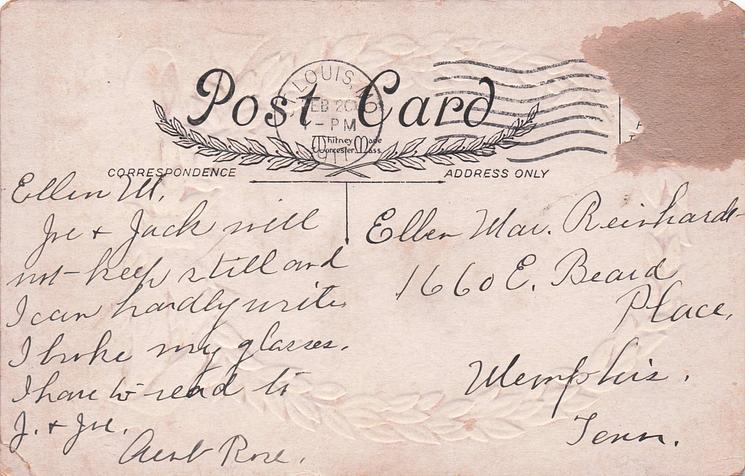 Post Card
ST. LOUIS, MO.
FEB 20
7-PM
1911
Whitney Made
Worcester Mass.
CORRESPONDENCE
ADDRESS ONLY
Ellen M.
Joe + Jack will
not keep still and
I can hardly write.
I broke my glasses.
I have to read to
J. + Joe.
Aunt Rose.
Ellen Mae. Reinhardt
1660 E. Beard
Place,
Memphis.
Tenn.